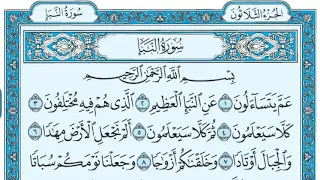 الجزء الثلاثون
سورة النبإ
سورة النبإ
بسم الله الرحمن الرحيم
عم يتساءلون ١ عن النبإ العظيم ٢ الذي هم فيه مختلفون ٣
كلا سيعلمون ٤ ثم كلا سيعلمون ٥ ألم نجعل الأرض مهدا ٦
والجبال أوتادا ٧ وخلقنكم أزوجا ٨ وجعلنا نومكم سباتا